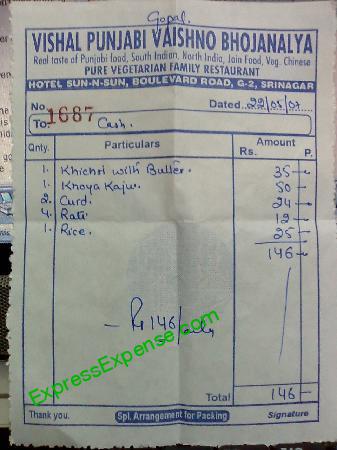 Gopal.
VISHAL PUNJABI VAISHNO BHOJANALYA
Real taste of Punjabi food, South Indian, North India, Jain Food, Veg. Chinese
PURE VEGETARIAN FAMILY RESTAURANT
HOTEL SUN-N-SUN, BOULEVARD ROAD, G-2, SRINAGAR
No. 1687 Dated 22/05/07
To: Cash.
Qnty. Particulars Amount
Rs. P.
1. Khichri with Butter. 35
1. Khoya Kaju. 50
2. Curd. 24
4. Roti 12
1. Rice. 25
146
Rs 146/only
ExpressExpense.com
Total 146
Thank you. Spl. Arrangement for Packing Signature